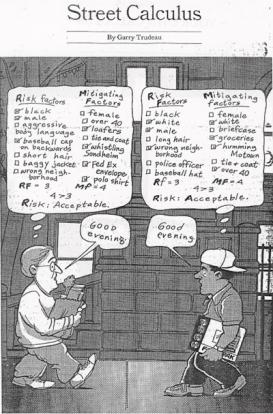 Street Calculus
By Garry Trudeau
Risk Factors
black
male
aggressive
body language
baseball cap
on backwards
short hair
baggy jacket
wrong neigh-
borhood
RF = 3
Mitigating
Factors
female
over 40
loafers
tie and coat
whistling
Sondheim
Fed Ex
envelope
polo shirt
MF = 4
4>3
Risk: Acceptable.
Risk
Factors
black
white
male
long hair
wrong neigh-
borhood
police officer
baseball hat
Rf = 3
Mitigating
Factors
female
white
briefcase
groceries
humming
Motown
tie + coat
over 40
MF = 4
4>3
Risk: Acceptable.
GOOD
evening.
Good
evening.